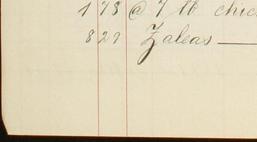 173 @ 7 lb chic
829 Zaleas